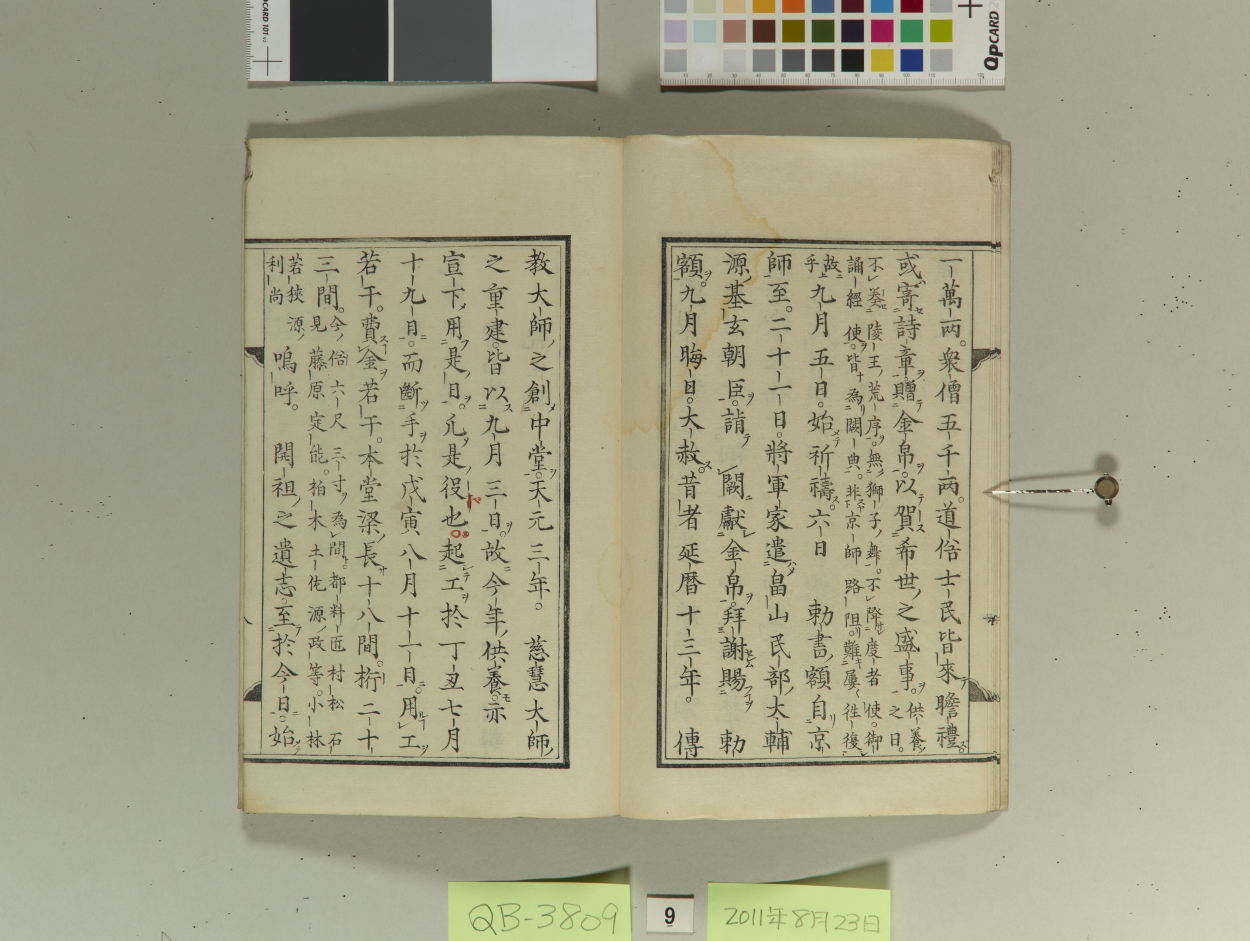 一萬兩。衆僧五千兩。道俗士民皆來瞻禮。
或寄詩章贈金帛。以賀希世之盛事。供養之日。
不奏陵王荒序。無獅子舞。不降度者使。御
誦經使。皆為闕典。非京師路阻。難屢徃復
故手九月五日。始祈禱。六日 勅書額自京
師至。二十一日。將軍家遣畠山民部大輔
源基玄朝臣。詣闕獻金帛。拜謝賜 勅
額。九月晦日。大赦。昔者延暦十三年。 傳
教大師之創中堂。天元三年。 慈慧大師
之重建。皆以九月三日。故今年供養。亦
宣下用是日。凢是役也。起工於丁丑七月
十九日。而斷手於戊寅八月十一日。用工
若干。費金若干。本堂梁長十八間。桁二十
三間。今俗六尺三寸為間。都料匠村松石
見藤原定能。柏木土佐源政等。小林
若狹源利尚 嗚呼。 開祖之遺志。至於今日。始
QPCARD 101 v3
QPCARD
QB-3809
9
2011年8月23日